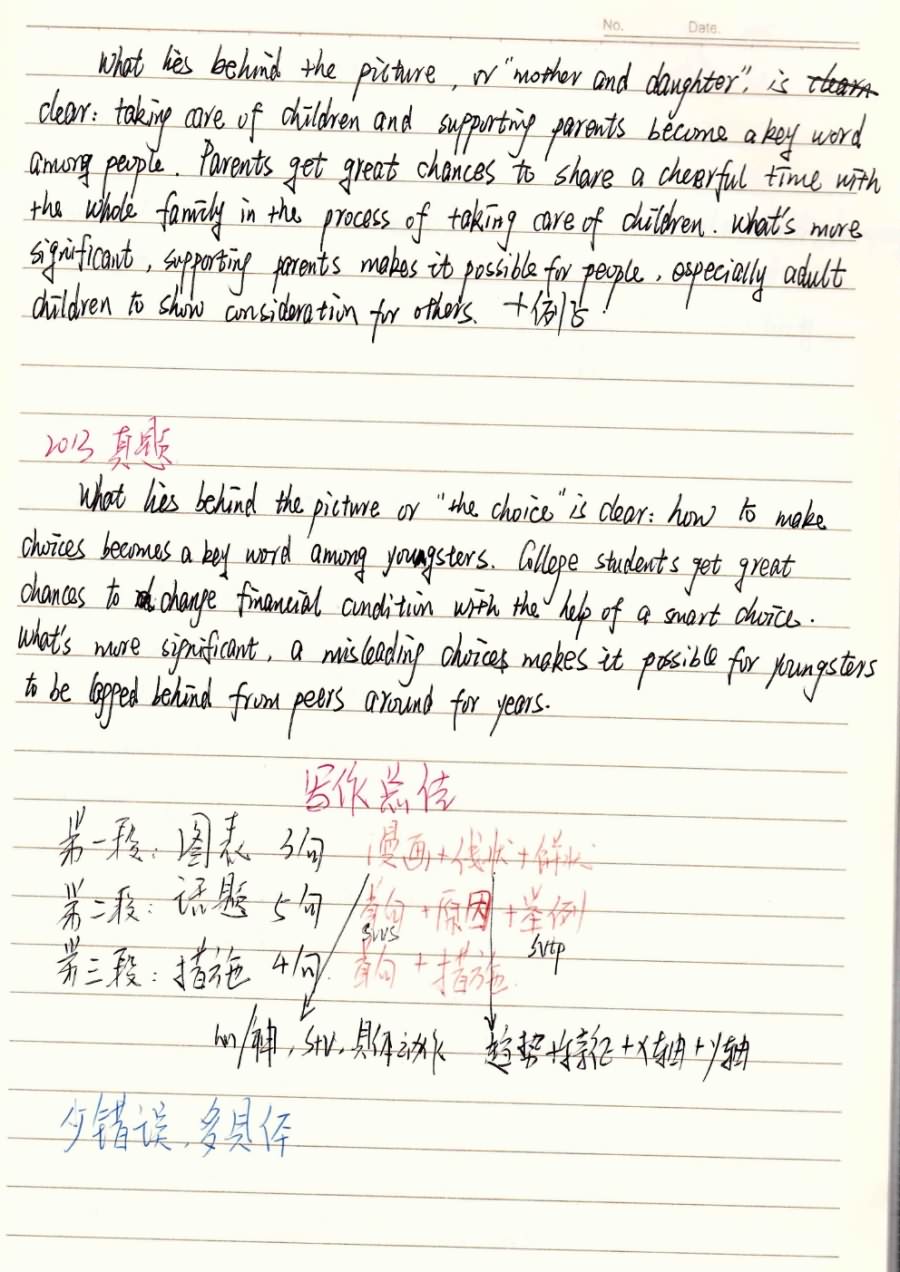 No. Date.
What lies behind the picture, or "mother and daughter", is
clear: taking care of children and supporting parents become a key word
among people. Parents get great chances to share a cheerful time with
the whole family in the process of taking care of children. What's more
significant, supporting parents makes it possible for people, especially adult
children to show consideration for others. +例子
2013 真题
What lies behind the picture or "the choice" is clear: how to make
choices becomes a key word among youngsters. College students get great
chances to change financial condition with the help of a smart choice.
What's more significant, a misleading choice makes it possible for youngsters
to be lagged behind from peers around for years.
写作总结
第一段: 图表 3句 漫画+线状+饼状
第二段: 话题 5句 首句+原因+举例
第三段: 措施 4句. 首句+措施.
SVtp
, S+V, 具体动作 趋势+特征+X轴+y轴
少错误, 多具体